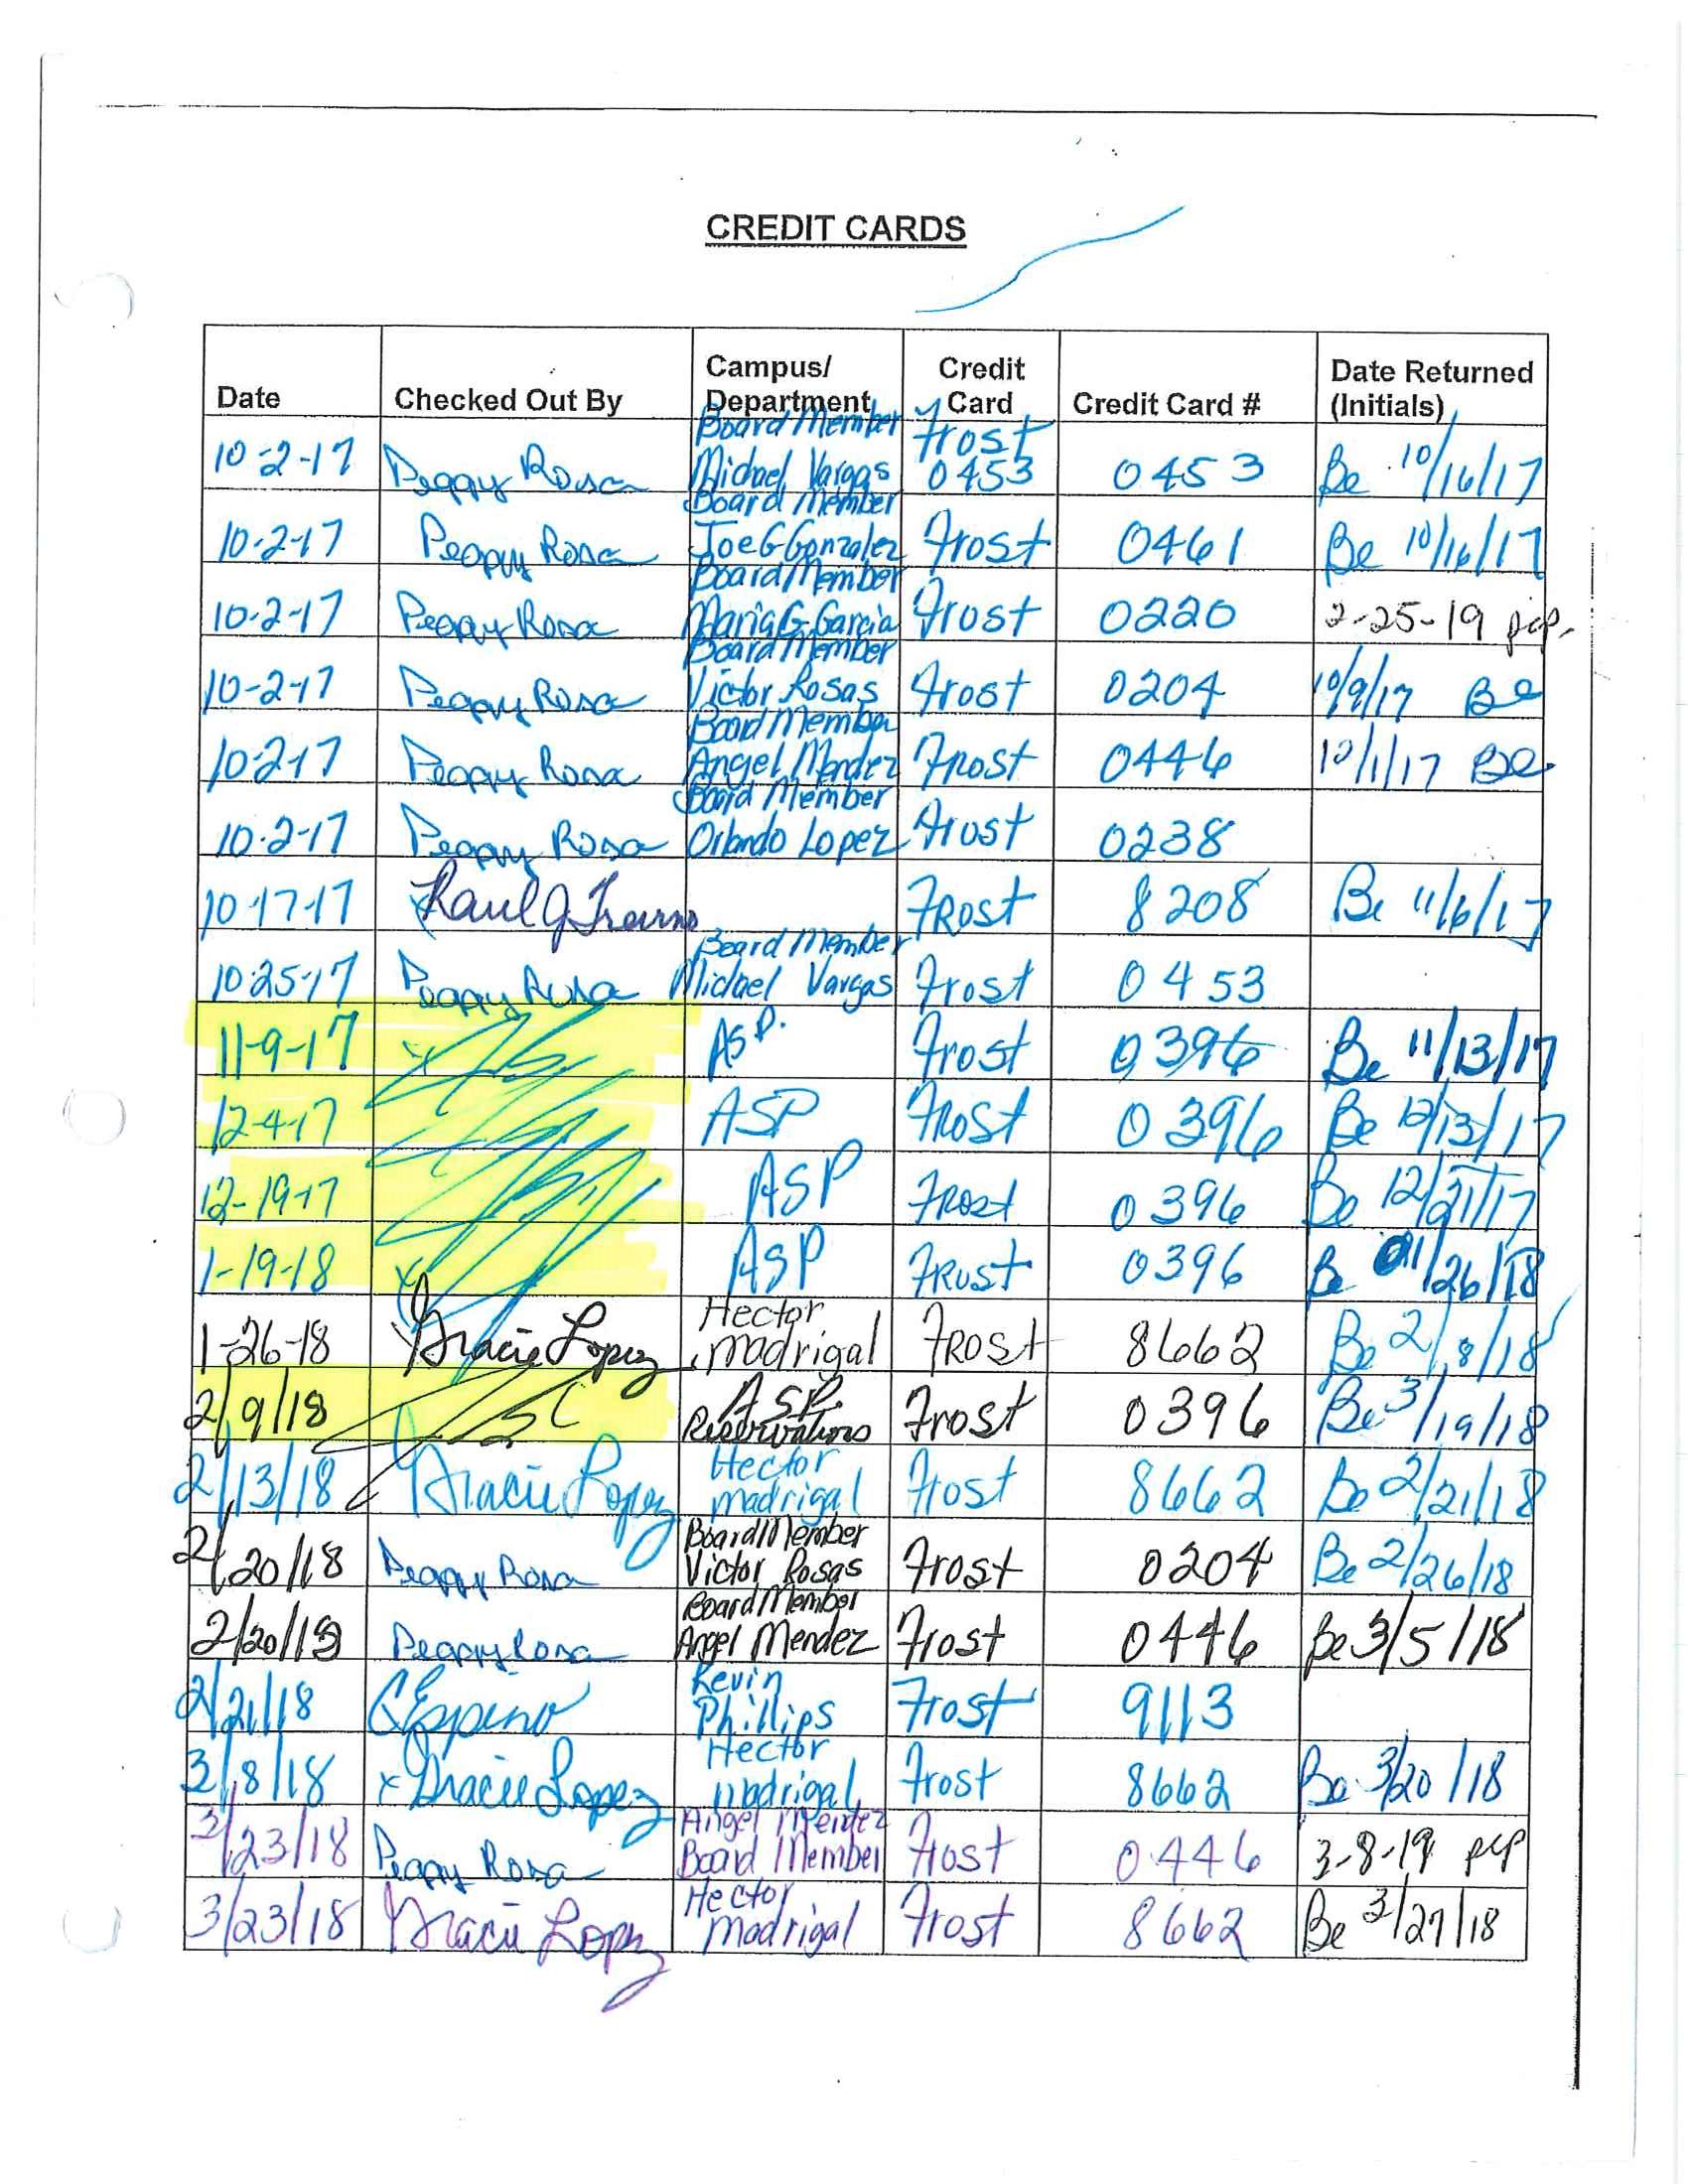 CREDIT CARDS
Date Checked Out By Campus/ Department Credit Card Credit Card # Date Returned (Initials)
10-2-17 Peggy Rosa Board Member Michael Vargas Frost 0453 0453 Be 10/16/17
10-2-17 Peggy Rosa Board Member Joe G Gonzalez Frost 0461 Be 10/16/17
10-2-17 Peggy Rosa Board Member Maria G. Garcia Frost 0220 2-25-19 pcp.
10-2-17 Peggy Rosa Board Member Victor Rosas Frost 0204 10/9/17 Be
10-2-17 Peggy Rosa Board Member Angel Mendez Frost 0446 10/1/17 Be
10-2-17 Peggy Rosa Board Member Orlando Lopez Frost 0238
10-17-17 Raul J Frost 8208 Be 11/6/17
10-25-17 Peggy Rosa Board Member Michael Vargas Frost 0453
11-9-17 x ASP. Frost 0396 Be 11/13/17
12-4-17 ASP Frost 0396 Be 12/13/17
12-19-17 ASP Frost 0396 Be 12/21/17
1-19-18 x ASP Frost 0396 Be 01/26/18
1-26-18 Gracie Lopez Hector Madrigal Frost 8662 Be 2/8/18
2/9/18 ASP. Reservations Frost 0396 Be 3/19/18
2/13/18 Gracie Lopez Hector Madrigal Frost 8662 Be 2/21/18
2/20/18 Peggy Rosa Board Member Victor Rosas Frost 0204 Be 2/26/18
2/20/18 Peggy Rosa Board Member Angel Mendez Frost 0446 Be 3/5/18
2/21/18 CEspino Kevin Phillips Frost 9113
3/8/18 x Gracie Lopez Hector Madrigal Frost 8662 Be 3/20/18
3/23/18 Peggy Rosa Angel Mendez Board Member Frost 0446 3-8-19 pcp
3/23/18 Gracie Lopez Hector Madrigal Frost 8662 Be 3/27/18